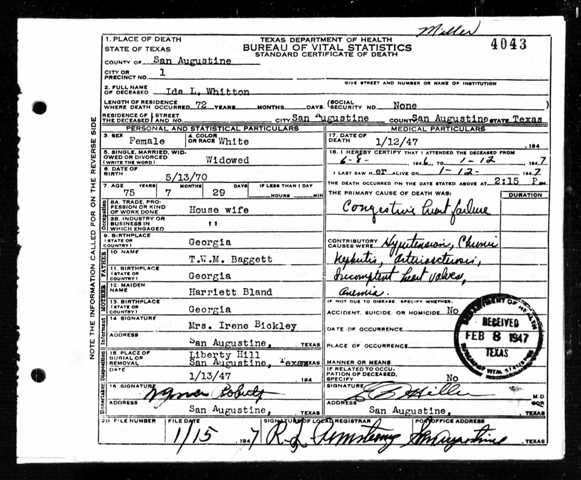 Miller
4043
TEXAS DEPARTMENT OF HEALTH
BUREAU OF VITAL STATISTICS
STANDARD CERTIFICATE OF DEATH
1. PLACE OF DEATH
STATE OF TEXAS
COUNTY OF San Augustine
CITY OR
PRECINCT NO. 1
GIVE STREET AND NUMBER OR NAME OF INSTITUTION
2. FULL NAME
OF DECEASED Ida L. Whitton
LENGTH OF RESIDENCE
WHERE DEATH OCCURRED 72 YEARS MONTHS DAYS (SOCIAL SECURITY NO. None
RESIDENCE OF THE DECEASED STREET AND NO. CITY San Augustine COUNTY San Augustine STATE Texas
PERSONAL AND STATISTICAL PARTICULARS
3. SEX Female
4. COLOR OR RACE White
5. SINGLE, MARRIED, WIDOWED OR DIVORCED (WRITE THE WORD) Widowed
6. DATE OF BIRTH 5/13/70
7. AGE YEARS 75 MONTHS 7 DAYS 29 IF LESS THAN 1 DAY HOURS MIN
8A. TRADE, PROFESSION OR KIND OF WORK DONE House wife
8B. INDUSTRY OR BUSINESS IN WHICH ENGAGED "
9. BIRTHPLACE (STATE OR COUNTRY) Georgia
10. NAME T.W.M. Baggett
11. BIRTHPLACE (STATE OR COUNTRY) Georgia
12. MAIDEN NAME Harriett Bland
13. BIRTHPLACE (STATE OR COUNTRY) Georgia
14. SIGNATURE Mrs. Irene Bickley
ADDRESS San Augustine, TEXAS
15. PLACE OF BURIAL OR REMOVAL Liberty Hill
San Augustine, Texas
DATE 1/13/47 194
16. SIGNATURE
ADDRESS San Augustine, TEXAS
MEDICAL PARTICULARS
17. DATE OF DEATH 1/12/47 194
18. I HEREBY CERTIFY THAT I ATTENDED THE DECEASED FROM
6-8- 1946, TO 1-12 1947
I LAST SAW H er ALIVE ON 1-12- 1947
THE DEATH OCCURRED ON THE DATE STATED ABOVE AT 2:15 P M.
THE PRIMARY CAUSE OF DEATH WAS: DURATION
Congestive heart failure
CONTRIBUTORY CAUSES WERE: Hypertension, Chronic
Nephritis, Arteriosclerosis,
Incompetent heart valves,
anemia.
IF NOT DUE TO DISEASE, SPECIFY WHETHER:
ACCIDENT, SUICIDE OR HOMICIDE No
DATE OF OCCURRENCE
PLACE OF OCCURRENCE
MANNER OR MEANS
IF RELATED TO OCCUPATION OF DECEASED, SPECIFY No
SIGNATURE
M.D. OR
ADDRESS San Augustine, TEXAS
20 FILE NUMBER
FILE DATE 1/15 1947
SIGNATURE OF LOCAL REGISTRAR R L Armstrong
POSTOFFICE ADDRESS San Augustine TEXAS
DEPARTMENT OF HEALTH
RECEIVED
FEB 8 1947
TEXAS
BUREAU OF VITAL STATISTICS
NOTE THE INFORMATION CALLED FOR ON THE REVERSE SIDE